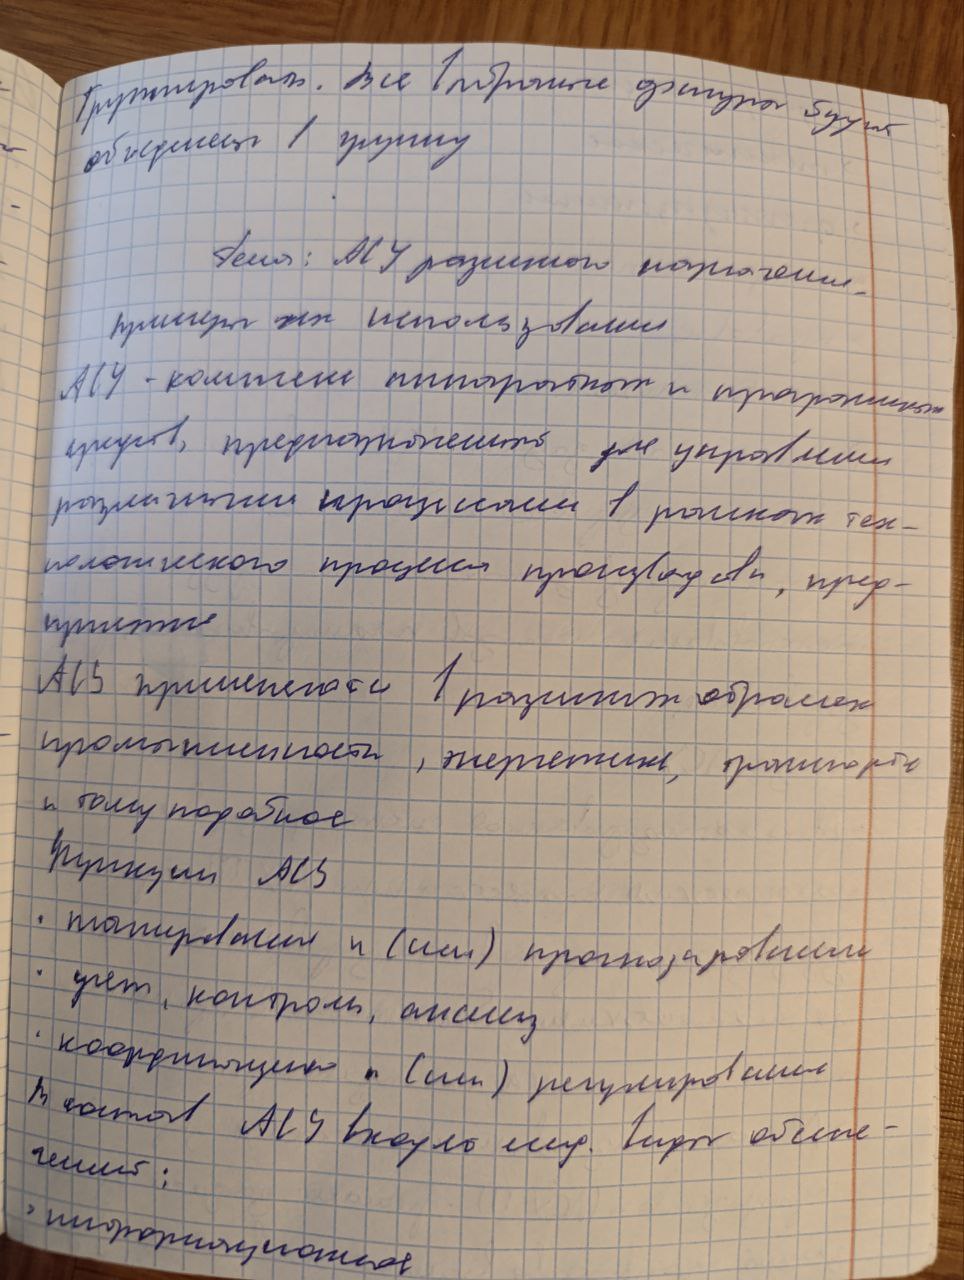 Группировать. Все выбранные фигуры будут
объединены в группу
Тема: АСУ различного назначения,
примеры их использования
АСУ - комплекс аппаратных и программных
средств, предназначенный для управления
различными процессами в рамках тех-
нологического процесса производства, пред-
приятие
АСУ применяются в различных отраслях
промышленности, энергетике, транспорте
и тому подобное
Функции АСУ
· планирование и (или) прогнозирование
· учет, контроль, анализ
· координация и (или) регулирование
В состав АСУ входят след. виды обеспе-
чений:
· информационное